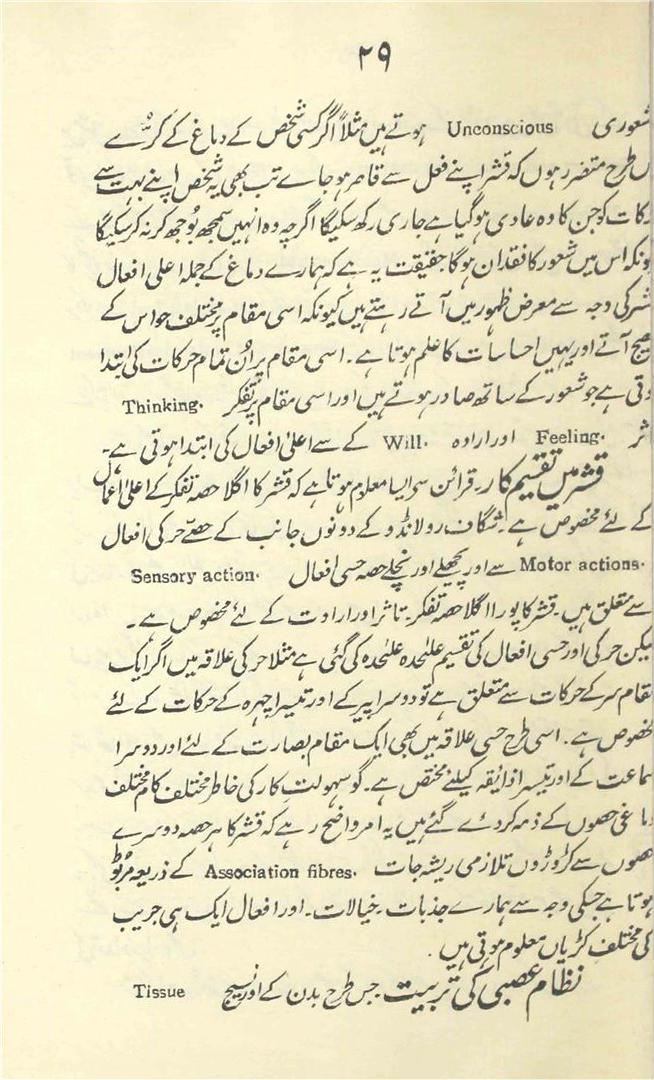 ۲۹
شعوری Unconscious ہوتے ہیں مثلاً اگر کسی شخص کے دماغ کے کرّے
طرح متضرر ہوں کہ قشر اپنے فعل سے قاصر ہو جاے تب بھی یہ شخص اپنے بہت سے
رکات کو جن کا وہ عادی ہو گیا ہے جاری رکھ سکیگا اگرچہ وہ انہیں سمجھ بوجھ کر نہ کر سکیگا
ونکہ اس میں شعور کا فقدان ہوگا حقیقت یہ ہے کہ ہمارے دماغ کے جملہ اعلی افعال
شر کی وجہ سے معرض ظہور میں آتے رہتے ہیں کیونکہ اسی مقام پر مختلف حواس کے
ہیج آتے اور یہیں احساسات کا علم ہوتا ہے۔ اسی مقام پر اُن تمام حرکات کی ابتدا
وتی ہے جو شعور کے ساتھ صادر ہوتے ہیں اور اسی مقام پر تفکر Thinking.
اثر Feeling. اور ارادہ Will. کے سے اعلیٰ افعال کی ابتدا ہوتی ہے۔
قشر میں تقسیم کار۔ قرائن سے ایسا معلوم ہوتا ہے کہ قشر کا اگلا حصہ تفکر کے اعلیٰ اعمال
کے لئے مخصوص ہے۔ شگاف رولانڈو کے دونوں جانب کے حصّے حرکی افعال
Motor actions. سے اور پچھلے اور نچلے حصہ حسی افعال Sensory action.
سے متعلق ہیں۔ قشر کا پورا اگلا حصہ تفکر۔ تاثر اور ارادت کے لئے مخصوص ہے۔
لیکن حرکی اور حسی افعال کی تقسیم علیٰحدہ علیٰحدہ کی گئی ہے مثلا حرکی علاقہ میں اگر ایک
مقام سر کے حرکات سے متعلق ہے تو دوسرا پیر کے اور تیسرا چہرہ کے حرکات کے لئے
مخصوص ہے۔ اسی طرح حسی علاقہ میں بھی ایک مقام بصارت کے لئے اور دوسرا
سماعت کے اور تیسرا ذایقہ کیلئے مختص ہے۔ گو سہولت کار کی خاطر مختلف کام مختلف
دماغی حصوں کے ذمہ کر دئے گئے ہیں یہ امر واضح رہے کہ قشر کا ہر حصہ دوسرے
حصوں سے کڑوڑوں تلازمی ریشہ جات Association fibres. کے ذریعہ مربوط
ہوتا ہے جسکی وجہ سے ہمارے جذبات۔ خیالات۔ اور افعال ایک ہی جریب
کی مختلف کڑیاں معلوم ہوتی ہیں۔
نظام عصبی کی تربیت جس طرح بدن کے اور نسیج Tissue